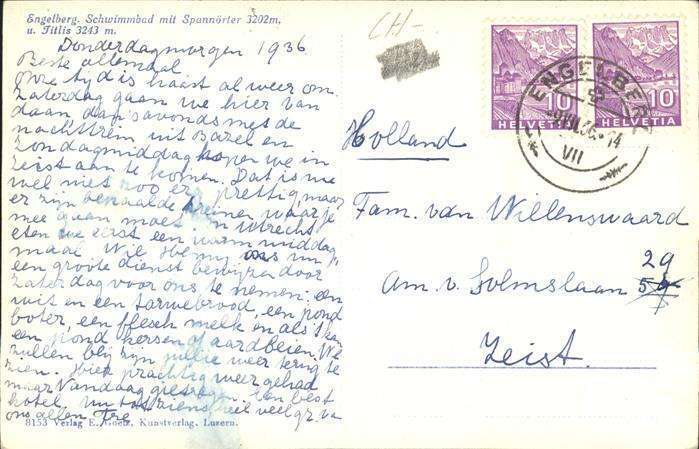 Engelberg. Schwimmbad mit Spannörter 3202m,
u. Titlis 3243 m.
CH-
Donderdagmorgen 1936
Beste allemaal
Onze tyd is haast al weer om.
Zaterdag gaan we hier van
daan dan 's avonds met de
nachttrein uit Bazel en
Zondagmiddag hopen we in
Zeist aan te komen. Dat is me
wel niet zoo erg prettig maar
er zyn bepaalde treinen waar je
mee gaan moet. In Utrecht
eten we eerst een warm middag
maal. Wil Henny ons nu
een groote dienst bewyzen door
Zaterdag voor ons te nemen: een
wit en een tarwebrood, een pond
boter, een flesch melk en als 't kan
een pond kersen of aardbeien. We
zullen bly zyn jullie weer terug te
zien. Hier prachtig weer gehad
maar Vandaag gietregen. Een best
hotel. Nu tot ziens heel veel gr. va
ons allen
8153 Verlag E. Goetz, Kunstverlag, Luzern.
10 HELVETIA
10 HELVETIA
ENGELBERG
VII
Holland
Fam. van Willenswaard
29
Am. v. Solmslaan
Zeist.